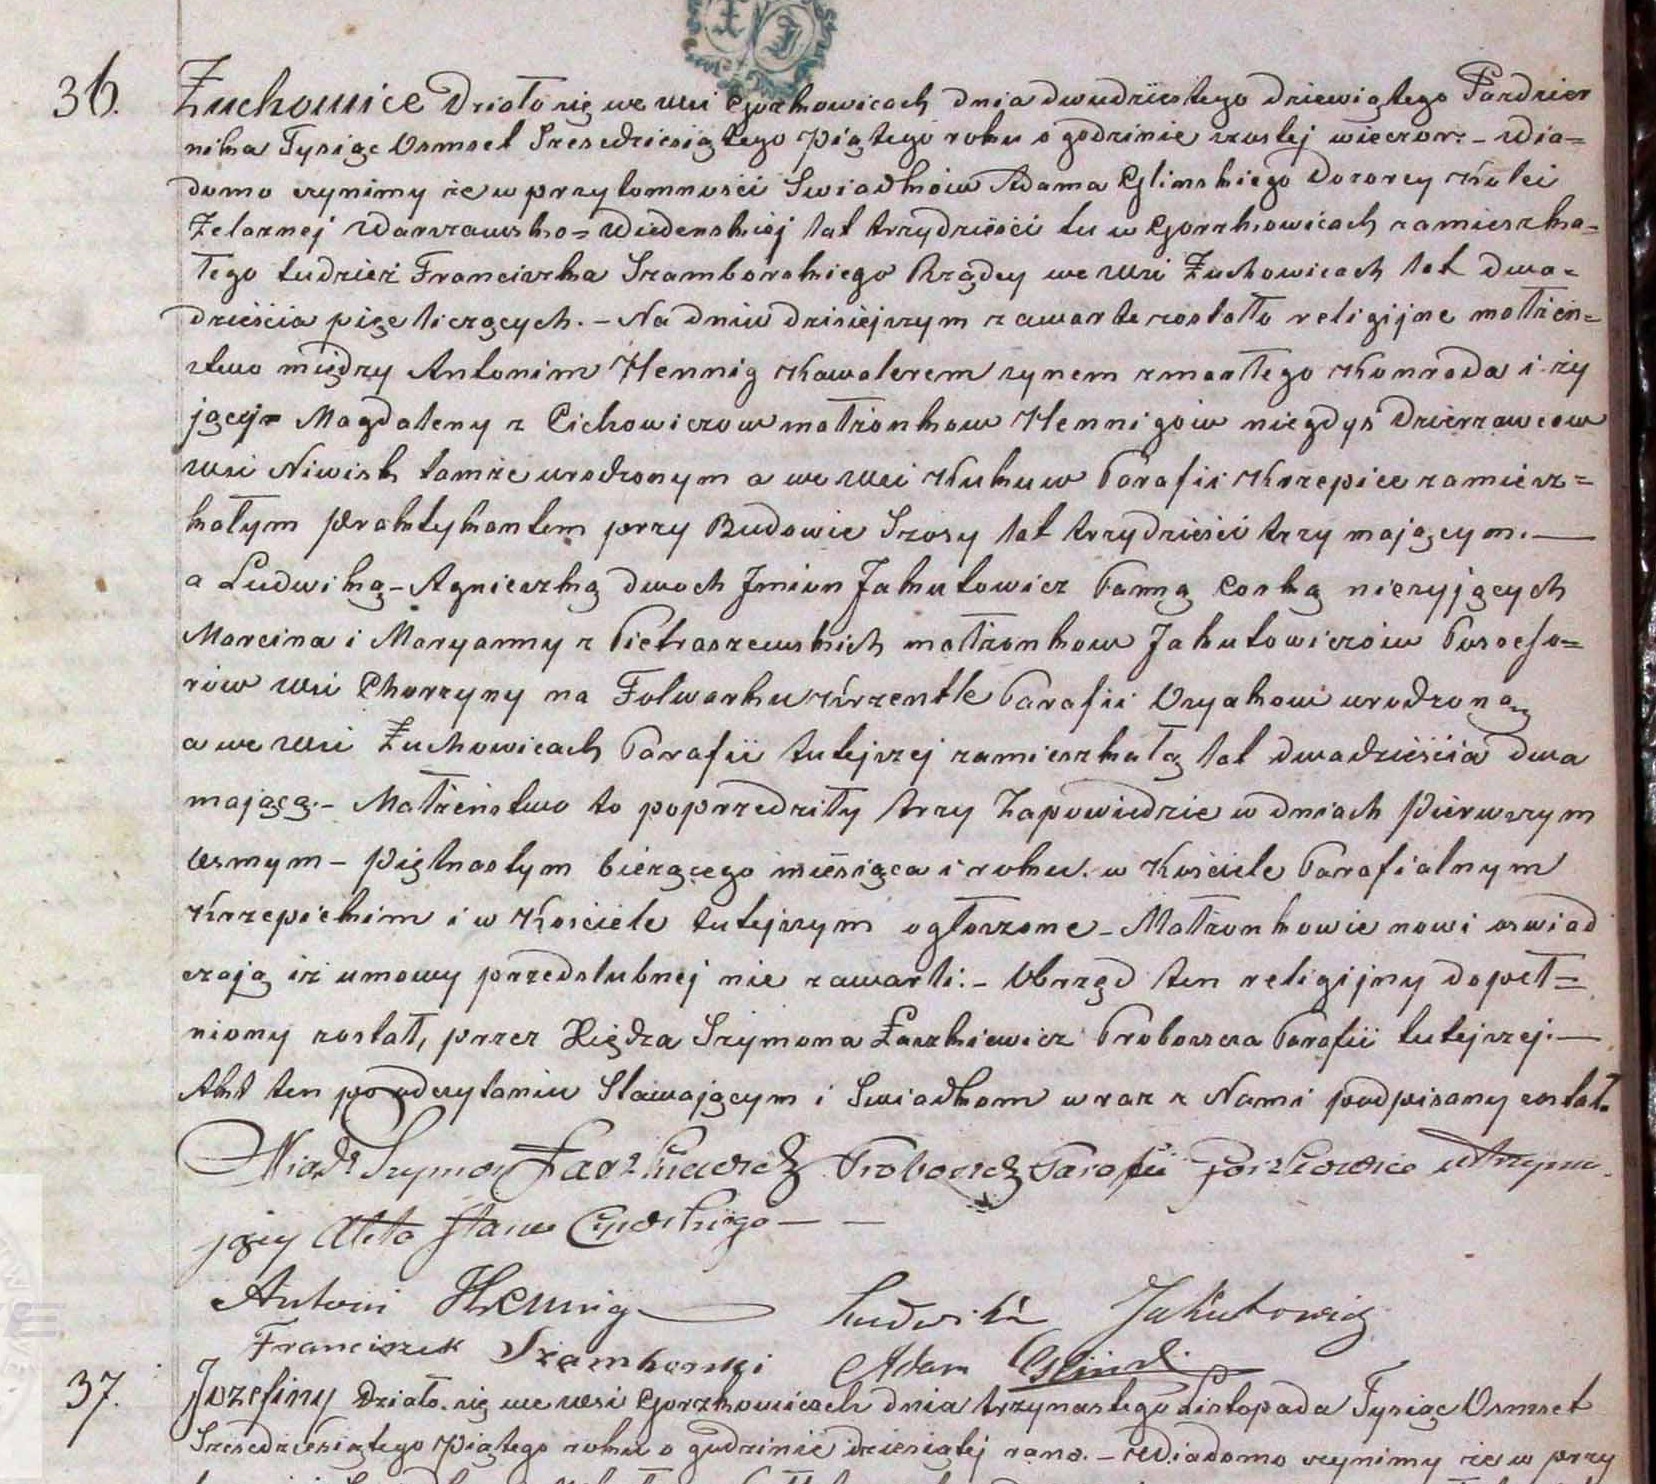 36. Żuchowice Działo się we wsi Gorzkowicach dnia dwudziestego dziewiątego Pazdzier
nika Tysiąc Osmset Szescdziesiątego Piątego roku o godzinie szostej wieczor: – Wia=
domo czynimy że w przytomności Swiadków Adama Glinskiego Dozorcy Kolei
Żelaznej Warszawsko=Wiedenskiej lat trzydzieści tu w Gorzkowicach zamieszka=
łego tudzież Franciszka Szamborskiego Rządcy we wsi Żuchowicach lat dwa=
dzieścia pięc liczących. – Na dniu dzisiejszym zawarte zostało religijne małżeń=
stwo między Antonim Hennig Kawalerem synem zmarłego Konrada i ży
jącej Magdaleny z Cichowiczow małżonkow Hennigów niegdyś Dzierzawcow
wsi Niwisk tamże urodzonym a we wsi Kukuw Parafii Krzepice zamiesz=
kałym Praktykantem przy Budowie Szosy lat trzydzieści trzy mającym. —
a Ludwiką – Agnieszką dwoch Jmion Jakutowicz Panną Corką nieżyjących
Marcina i Maryanny z Pietraszewskich małżonkow Jakutowiczów Posesso=
rów wsi Chorzyny na Folwarku Krzentle Parafii Osyakow urodzoną
a we wsi Żuchowicach Parafii tutejszej zamieszkałą lat dwadzieścia dwa
mającą. – Małżeństwo to poprzedziły trzy Zapowiedzie w dniach Pierwszym
osmym – Piętnastym bieżącego miesiąca i roku. w Kościele Parafialnym
Krzepickim i w Kościele tutejszym ogłoszone – Małżonkowie nowi oswiad
czają iż umowy przedslubnej nie zawarli: – Obrzęd ten religijny dopeł=
niony został, przez Xiędza Szymona Łaszkiewicz Proboszcza Parafii tutejszej. —
Akt ten po odczytaniu Stawającym i Swiadkom wraz z Nami podpisany został.
Xiądz Szymon Łaszkiewicz Proboszcz Parafii Gorzkowice utrzymu
jący Akta Stanu Cywilnego — —
Antoni Hennig Ludwika Jakutowicz
Franciszek Szamborski Adam Glinski
37. Jozefiny Działo się we wsi Gorzkowicach dnia trzynastego Listopada Tysiąc Osmset
Szescdziesiątego Piątego roku o godzinie dziesiątej rano. – Wiadomo czynimy że w przy